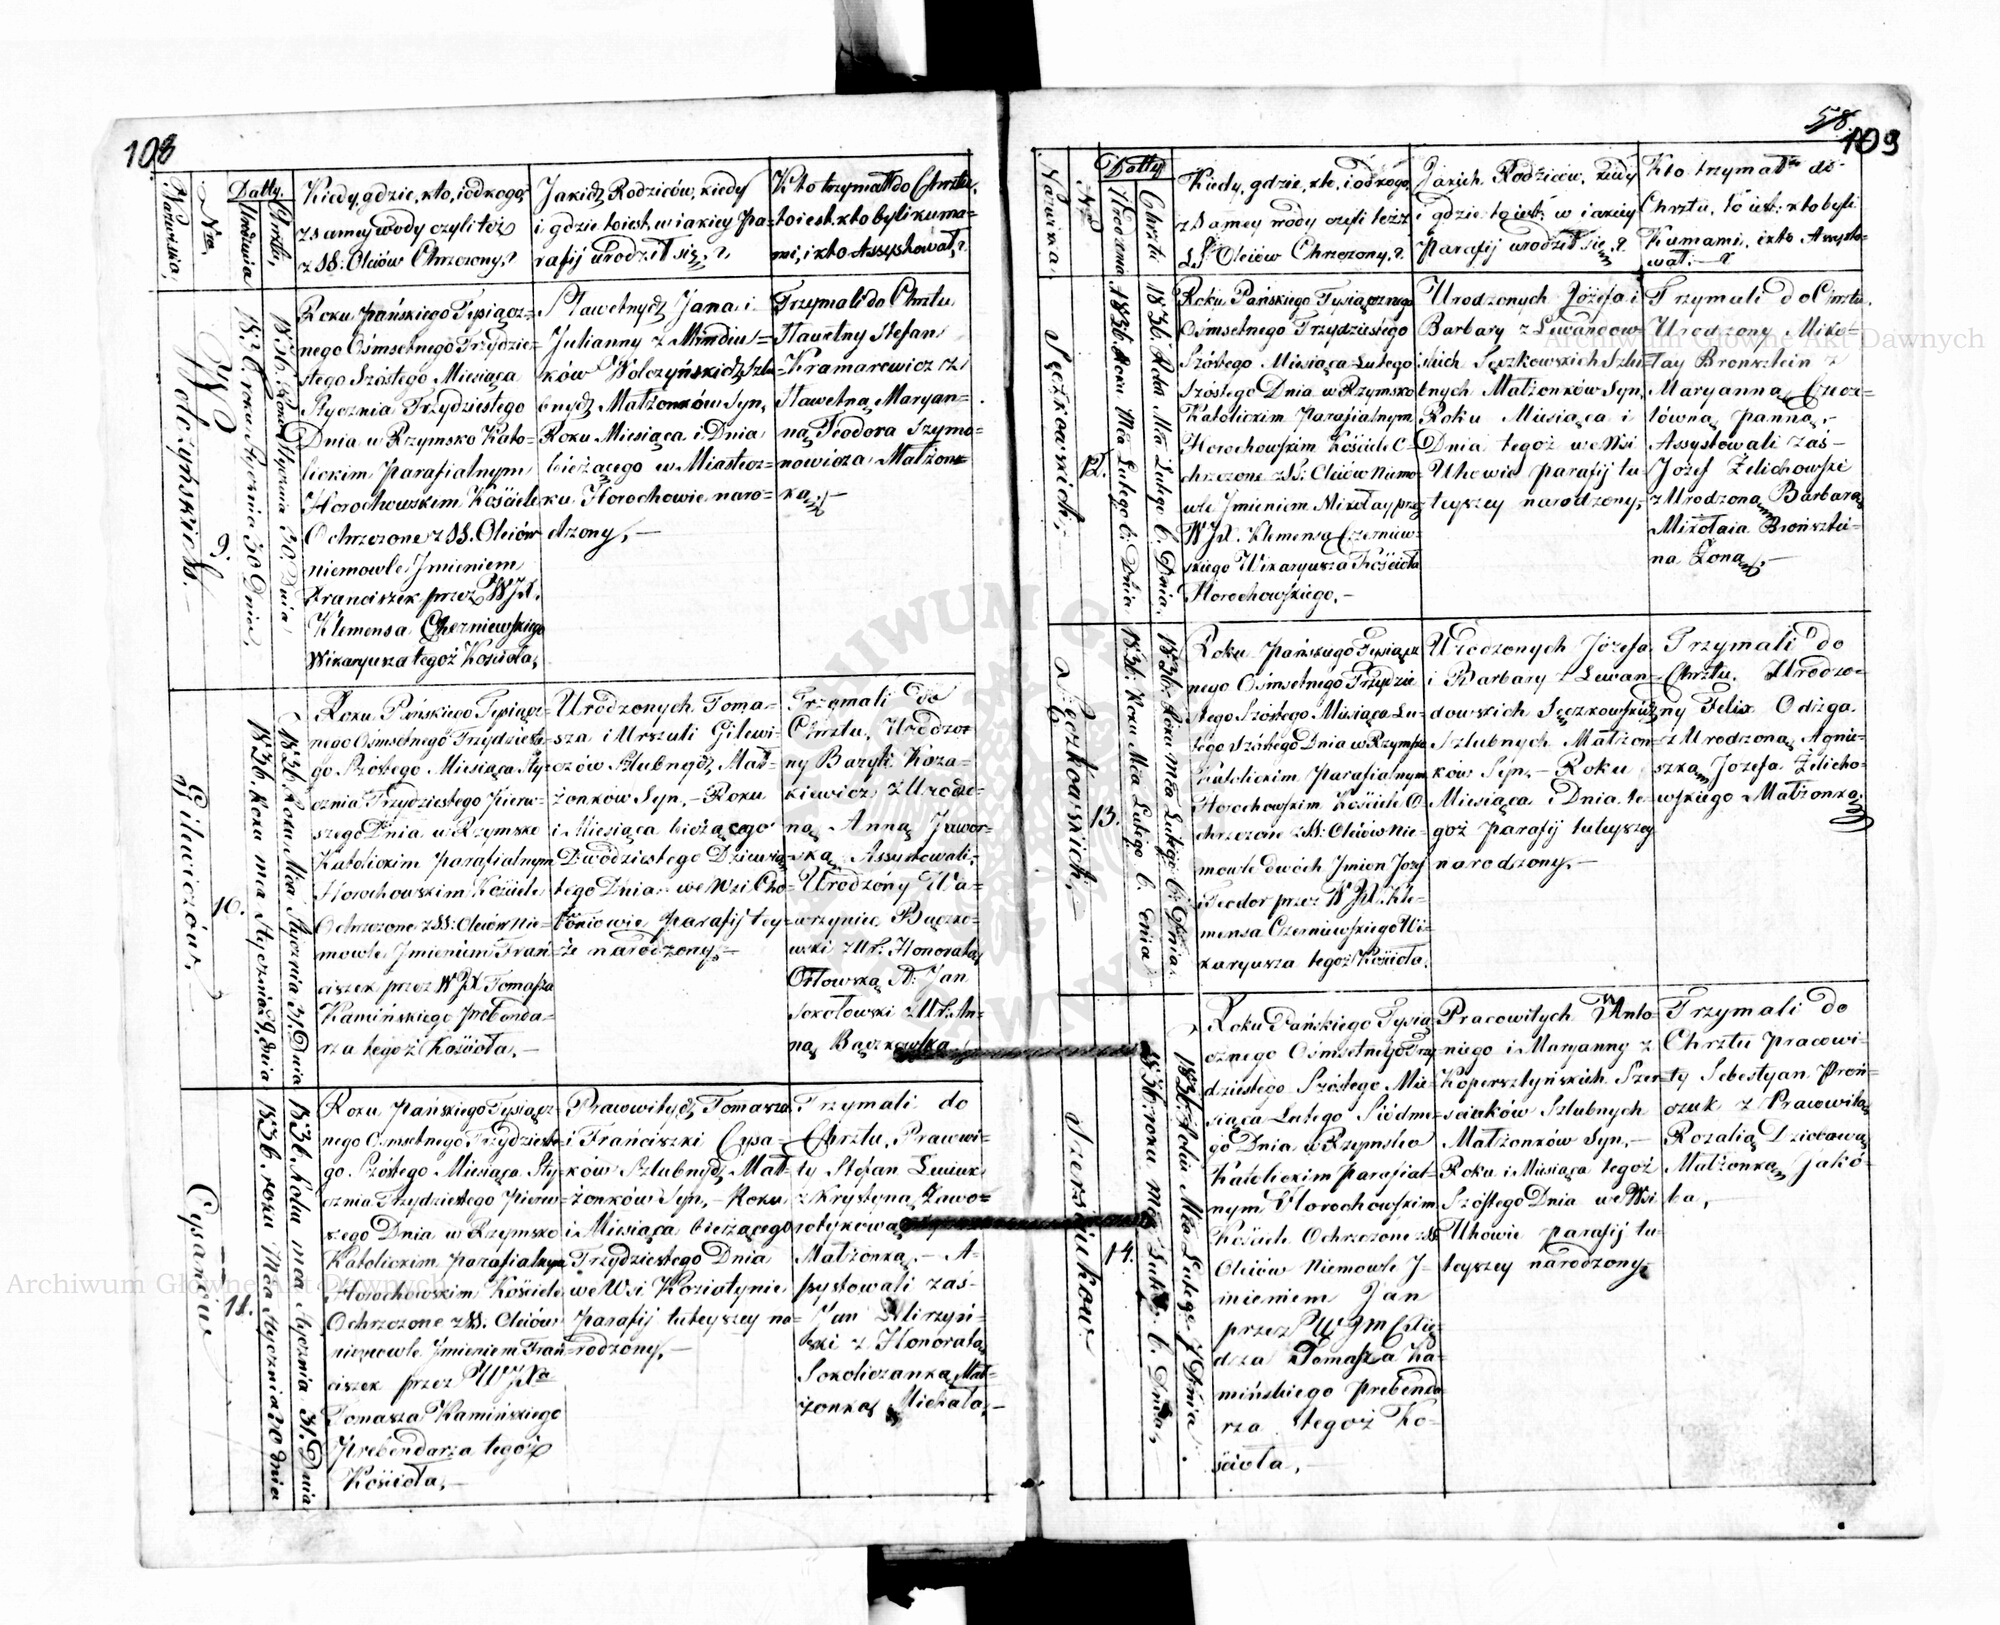 108
Nazwiska,
Nra.
Datty.
Urodzenia
Chrztu,
Kiedy, gdzie, kto, i od kogo
z samey wody czyli też
z SS: Oleiów Chrzczony,?
Jakich Rodziców, kiedy
i gdzie to iest, w iakiey Pa-
rafij urodził się,?
Kto trzymał do Chrztu,
to iest, kto byli kuma-
mi, i kto Assystował,?
Wołczyńskich.
9.
1836. roku Stycznia 30 Dnia.
1836. Roku Stycznia 30 Dnia
Roku Pańskiego Tysiącz-
nego Ośmsetnego Trzydzie-
stego Szóstego Miesiąca
Stycznia Trzydziestego
Dnia w Rzymsko Kato-
lickim Parafialnym
Horochowskim Kościele
Ochrzczone z SS. Oleiów
niemowle Jmieniem
Franciszek przez WJX.
Klemensa Czerniewskiego
Wikaryusza tegoż Kościoła,
Sławetnych Jana i
Julianny z
ków Wołczyńskich Szlu-
bnych Małżonków Syn,
Roku Miesiąca i Dnia
bieżącego w Miastecz-
ku Horochowie naro-
dzony, —
Trzymali do Chrztu
Sławetny Stefan
Kramarewicz z
Sławetną Maryan-
ną Teodora Szymo-
nowicza Małżon-
ką, —
Gilewiczów,
10.
1836 Roku mca Stycznia 29 dnia
1836 Roku Mca Stycznia 31. Dnia
Roku Pańskiego Tysiącz-
nego Ośmsetnego Trzydzieste-
go Szóstego Miesiąca Sty-
cznia Trzydziestego Pierw-
szego Dnia w Rzymsko
Katolickim Parafialnym
Horochowskim Kościele
Ochrzczone z SS: Oleiów Nie-
mowle Jmieniem Fran-
ciszek przez WJX Tomasza
Kamińskiego Prebenda-
rza tegoż Kościoła, —
Urodzonych Toma-
sza i Urszuli Gilewi-
czów Szlubnych Mał-
żonków Syn, — Roku
i Miesiąca bieżącego
Dwódziestego Dziewią-
tego Dnia we Wsi Cho-
łoniowie Parafij tey-
że narodzony, —
Trzymali do
Chrztu, Urodzo-
ny Bazyli Koza-
kiewicz z Urodzo-
ną Anną Jawor-
ską Assystowali,
Urodzóny Wa-
wrzyniec Bączko-
wski z Ur: Honoratą
Orłowską, D. Jan
Sokołowski z Ur. An-
ną Bączkowską,
Cysarów
11.
1836. roku Mca Stycznia 30 dnia
1836. Roku mca Stycznia 31. Dnia
Roku Pańskiego Tysiącz-
nego Ośmsetnego Trzydzieste-
go Szóstego Miesiąca Sty-
cznia Trzydziestego Pierw-
szego Dnia w Rzymsko
Katolickim Parafialnym
Horochowskim Kościele
Ochrzczone z SS. Oleiów
niemowle Jmieniem Fran-
ciszek przez WJXa
Tomasza Kamińskiego
Prebendarza tegoż
Kościoła, —
Pracowitych Tomasza
i Franciszki Cysa-
rów Szlubnych Mał-
żonków Syn, — Roku
i Miesiąca bieżącego
Trzydziestego Dnia
we Wsi Koziatynie
Parafij tuteyszey na-
rodzony, —
Trzymali do
Chrztu, Pracowi-
ty Stefan
z Krystyną Zawo-
rotykową
Małżonką. — A-
ssystowali zaś
Jan Mirzyń-
ski z Honoratą
Sokoliczanką, Mał-
żonką Michała, —
58
109
Nazwiska
Nra
Datty
Urodzenia
Chrztu
Kiedy, gdzie, kto, i od kogo,
z Samey wody czyli też z
SS Oleiów Chrzczony,?
Jakich Rodziców, kiedy
i gdzie to iest: w iakiey
Parafij urodził się,?
Kto trzymał do
Chrztu, to iest: kto byli
Kumami, i kto Assysto-
wał. — ?
Sęczkowskich, —
12.
1836. Roku Mca Lutego 6. Dnia
1836. Roku Mca Lutego 6. Dnia.
Roku Pańskiego Tysiącznego
Ośmsetnego Trzydziestego
Szóstego Miesiąca Lutego
Szóstego Dnia w Rzymsko
Katolickim Parafialnym
Horochowskim Kościele O-
chrzczone z SS. Oleiów Niemo-
wle Jmieniem Mikołay przez
WJX. Klemensa Czerniew-
skiego Wikaryusza Kościoła
Horochowskiego, —
Urodzonych Józefa i
Barbary z Lewandow-
skich Sęczkowskich Szlu-
bnych Małżonków Syn,
Roku Miesiąca i
Dnia tegoż we Wsi
Uhowie Parafij tu-
teyszey narodzony,
Trzymali do Chrztu,
Urodzony Miko-
łay Bronsztein z
Maryanną
Panną, —
Assystowali zaś —
Józef Żelichowski
z Urodzoną Barbarą
Mikołaia Bronsztei-
na Żoną, —
Sęczkowskich, —
13.
1836. Roku Mca Lutego 6. dnia
1836. Roku mca Lutego 6. Dnia
Roku Pańskiego Tysiącz-
nego Ośmsetnego Trzydzie-
stego Szóstego Miesiąca Lu-
tego Szóstego Dnia w Rzymsko
Katolickim Parafialnym
Horochowskim Kościele O-
chrzczone z SS: Oleiów Nie-
mowle dwóch Jmion Józef
i Teodor przez WJX. Kle-
mensa Czerniewskiego Wi-
karyusza tegoż Kościoła.
Urodzonych Józefa
i Barbary z Lewan-
dowskich Sęczkowskich
Szlubnych Małżon-
ków Syn, — Roku
Miesiąca i Dnia te-
goż Parafij tuteyszey
narodzony, —
Trzymali do
Chrztu, Urodzo-
ny Felix Odyga
z Urodzoną Agnie-
szką Józefa Żelicho-
wskiego Małżonką,
Szersciukow
14.
1836. roku Mca Lutego 6. Dnia,
1836. Roku Mca Lutego 7 Dnia.
Roku Pańskiego Tysią-
cznego Ośmsetnego Trzy-
dziestego Szóstego Mie-
siąca Lutego Siódme-
go Dnia w Rzymsko
Katolickim Parafial-
nym Horochowskim
Kościele Ochrzczone z SS
Oleiów Niemowle J-
mieniem Jan
przez WJm Xię-
dza Tomasza Ka-
mińskiego Prebenda-
rza tegoż Ko-
ścioła, —
Pracowitych Anto-
niego i Maryanny z
Kopersztyńskich Szer-
sciuków Szlubnych
Małżonków Syn, —
Roku i Miesiąca tegoż
Szóstego Dnia we Wsi
Uhowie Parafij tu-
teyszey narodzony,
Trzymali do
Chrztu Pracowi-
ty Sebestyan Proń-
czuk z Pracowitą
Rozalią Dziobową
Małżonką Jakó-
ba,
Archiwum Główne Akt Dawnych
Archiwum Główne Akt Dawnych